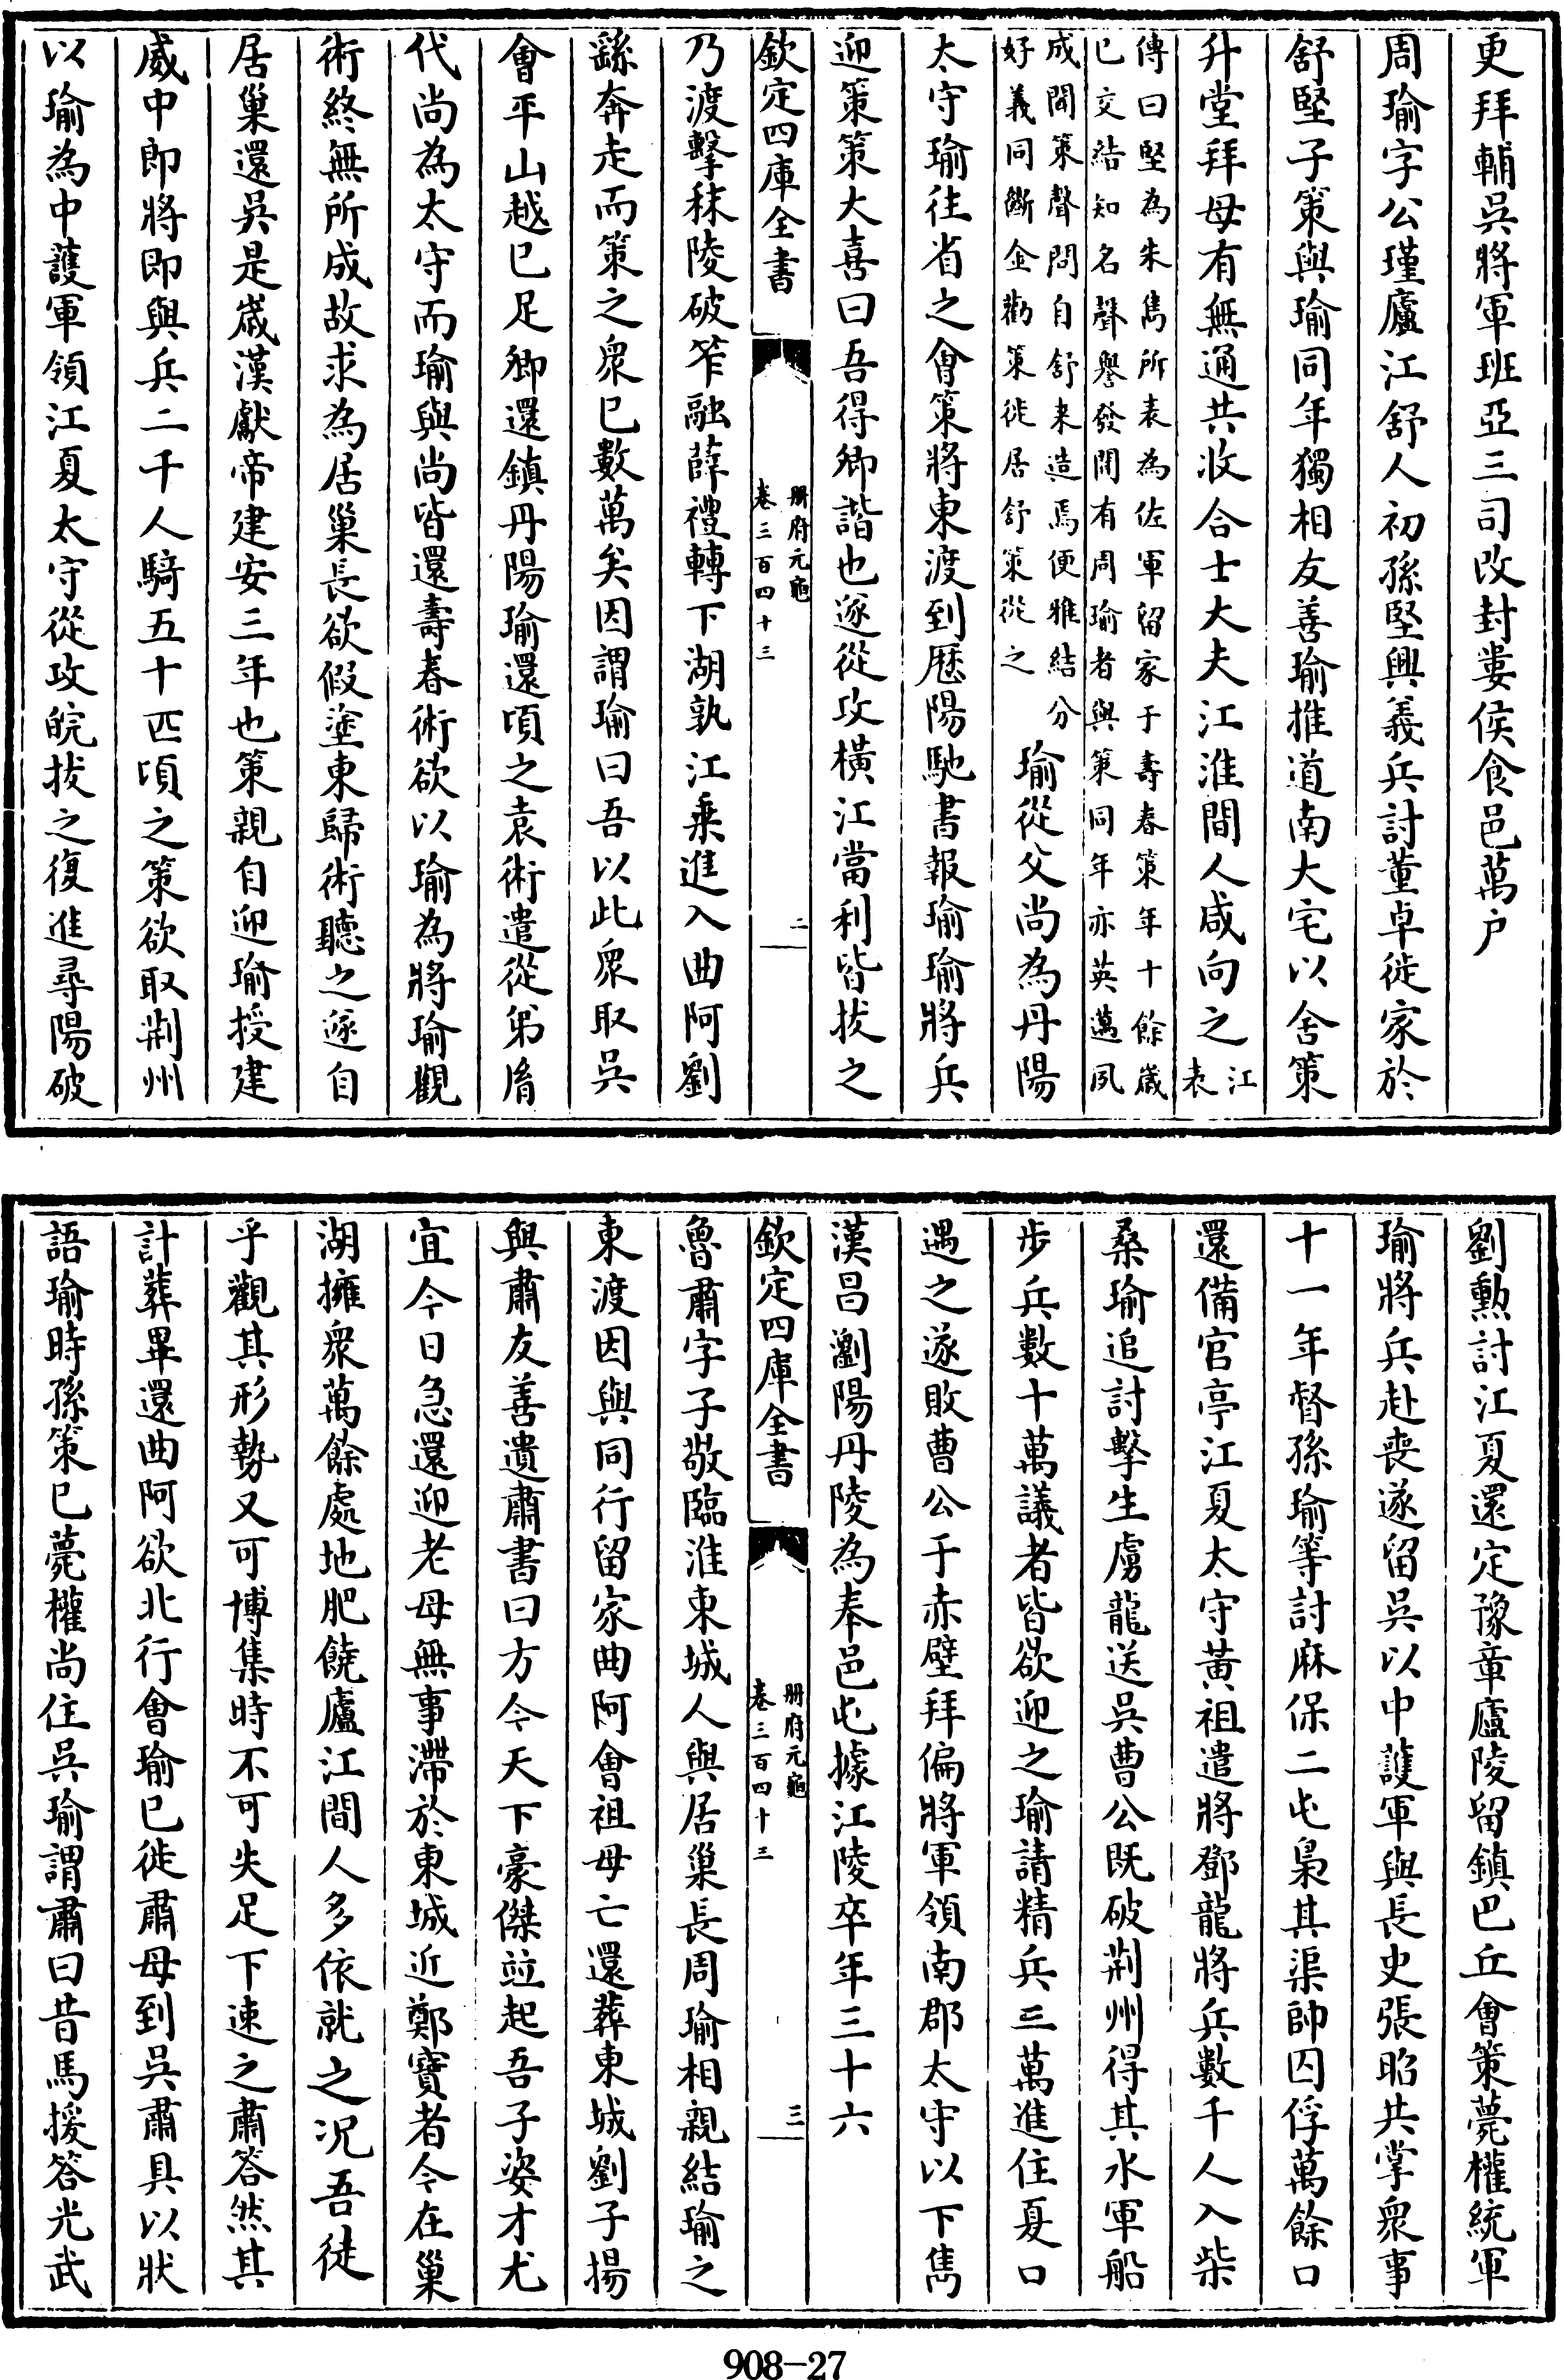 更拜輔吳將軍班亞三司改封婁侯食邑萬户
周瑜字公瑾廬江舒人初孫堅興義兵討董卓徙家於
舒堅子策與瑜同年獨相友善瑜推道南大宅以舍策
升堂拜母有無通共收合士大夫江淮間人咸向之江表
傳曰堅為朱雋所表為佐軍留家于壽春策年十餘歲
已交結知名聲譽發聞有周瑜者與策同年亦英邁夙
成聞策聲問自舒来造焉便雅結分
好義同斷金勸策徙居舒策從之
瑜從父尚為丹陽
太守瑜往省之會策將東渡到歷陽馳書報瑜瑜將兵
迎策策大喜曰吾得卿諧也遂從攻橫江當利皆拔之
欽定四庫全書
册府元龜
卷三百四十三
二
乃渡擊秣陵破笮融薛禮轉下湖孰江乗進入曲阿劉
繇奔走而策之衆已數萬矣因謂瑜曰吾以此衆取吳
會平山越已足卿還鎮丹陽瑜還頃之袁術遣從弟胤
代尚為太守而瑜與尚皆還壽春術欲以瑜為將瑜觀
術終無所成故求為居巢長欲假塗東歸術聽之遂自
居巢還吳是歲漢獻帝建安三年也策親自迎瑜授建
威中郎將即與兵二千人騎五十匹頃之策欲取荆州
以瑜為中護軍領江夏太守從攻皖拔之復進尋陽破
劉勲討江夏還定豫章廬陵留鎮巴丘會策薨權統軍
瑜將兵赴喪遂留吳以中護軍與長史張昭共掌衆事
十一年督孫瑜等討麻保二屯梟其渠帥囚俘萬餘口
還備官亭江夏太守黃祖遣將鄧龍將兵數千人入柴
桑瑜追討擊生虜龍送吳曹公既破荆州得其水軍船
步兵數十萬議者皆欲迎之瑜請精兵三萬進住夏口
遇之遂敗曹公于赤壁拜偏將軍領南郡太守以下雋
漢昌瀏陽丹陵為奉邑屯據江陵卒年三十六
欽定四庫全書
册府元龜
卷三百四十三
三
魯肅字子敬臨淮東城人與居巢長周瑜相親結瑜之
東渡因與同行留家曲阿會祖母亡還葬東城劉子揚
與肅友善遺肅書曰方今天下豪傑竝起吾子姿才尤
宜今日急還迎老母無事滯於東城近鄭寶者今在巢
湖擁衆萬餘處地肥饒廬江間人多依就之况吾徒
乎觀其形勢又可博集時不可失足下速之肅答然其
計葬畢還曲阿欲北行會瑜已徙肅母到吳肅具以狀
語瑜時孫策已薨權尚住吳瑜謂肅曰昔馬援答光武
908-27